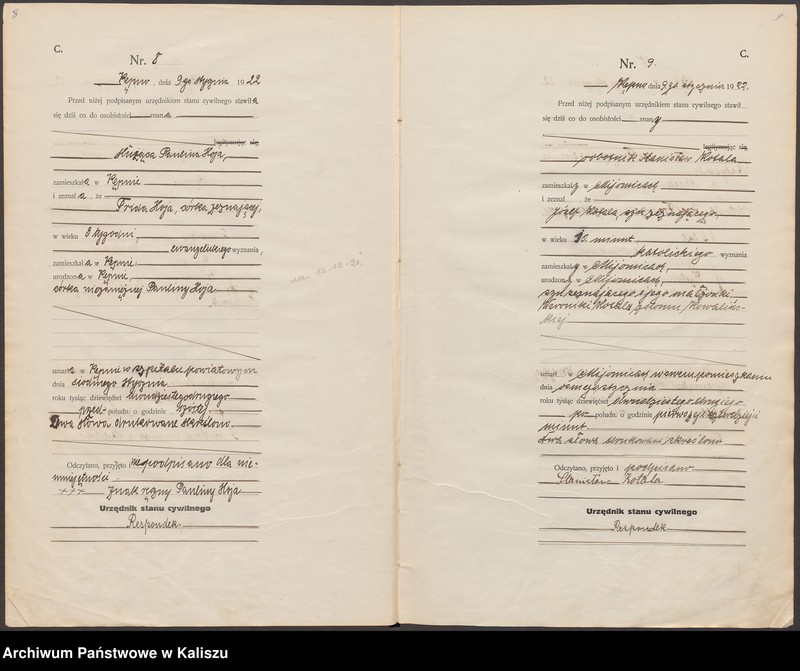 8
C.
Nr. 8
Kępno, dnia 9go stycznia 1922
Przed niżej podpisanym urzędnikiem stanu cywilnego stawiła
się dziś co do osobistości znana
legitymując się
służąca Paulina Hoja,
zamieszkała w Kępnie
i zeznała, że
Frida Hoja, córka zeznającej,
w wieku 8 tygodni,
ewangelickiego wyznania,
zamieszkała w Kępnie
urodzona w Kępnie,
córka niezamężnej Pauliny Hoja
umarła w Kępnie w szpitalu powiatowym
dnia siódmego stycznia
roku tysiąc dziewięćset dwudziestegodrugiego
przed południu o godzinie szóstej.
Dwa słowa drukowane skreślono.
Odczytano, przyjęto nie podpisano dla nie-
umiejętności
+++ znak ręczny Pauliny Hoja
Urzędnik stanu cywilnego
Respondek.
9
C.
Nr. 9.
Kępno dnia 9go stycznia 1922.
Przed niżej podpisanym urzędnikiem stanu cywilnego stawił
się dziś co do osobistości znany
legitymując się
robotnik Stanisław Kotala
zamieszkały w Mijomicach
i zeznał, że
Józef Kotala, syn zeznającego,
w wieku minut
katolickiego wyznania
zamieszkały w Mijomicach,
urodzony w Mijomicach,
syn zeznającego i jego małżonki
Weroniki Kotala, z domu Kowaliń-
skiej
umarł w Mijomicach w swem pomieszkaniu
dnia ósmego stycznia
roku tysiąc dziewięćset dwudziestego drugiego
po połudn. o godzinie pierwszej
minut
dwa słowa drukowane skreślono
Odczytano, przyjęto i podpisano
Stanisław Kotala
Urzędnik stanu cywilnego
Respondek
Archiwum Państwowe w Kaliszu